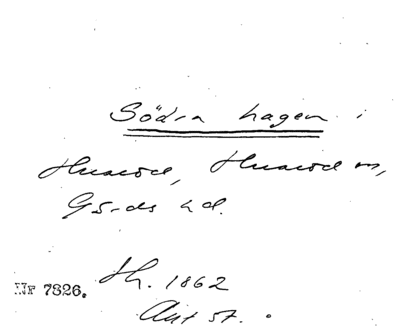 Södra hagen i
Huaröd, Huaröd sn,
Gärds hd.
Nr 7326. Th. 1862
Aut st.